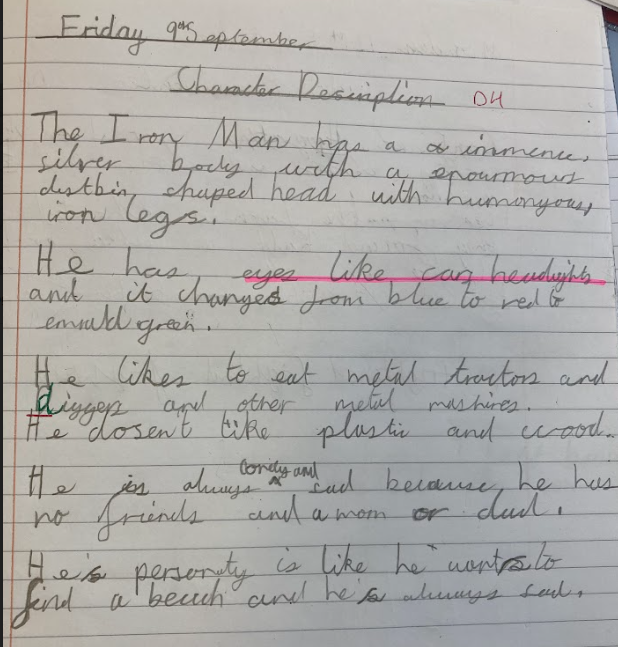 Friday 9th September
Character Description DH
The Iron Man has a a immence,
silver body with a enourmous
dustbin shaped head with humonyous,
iron legs.
He has eyes like car headlights
and it changes from blue to red to
emrald green.
He likes to eat metal tractors and
diggers and other metal mashires.
He dosent like plastic and wood.
He is always lonely and sad because he has
no friends and a mom or dad.
He's personity is like he wants to
find a beach and he's always sad.